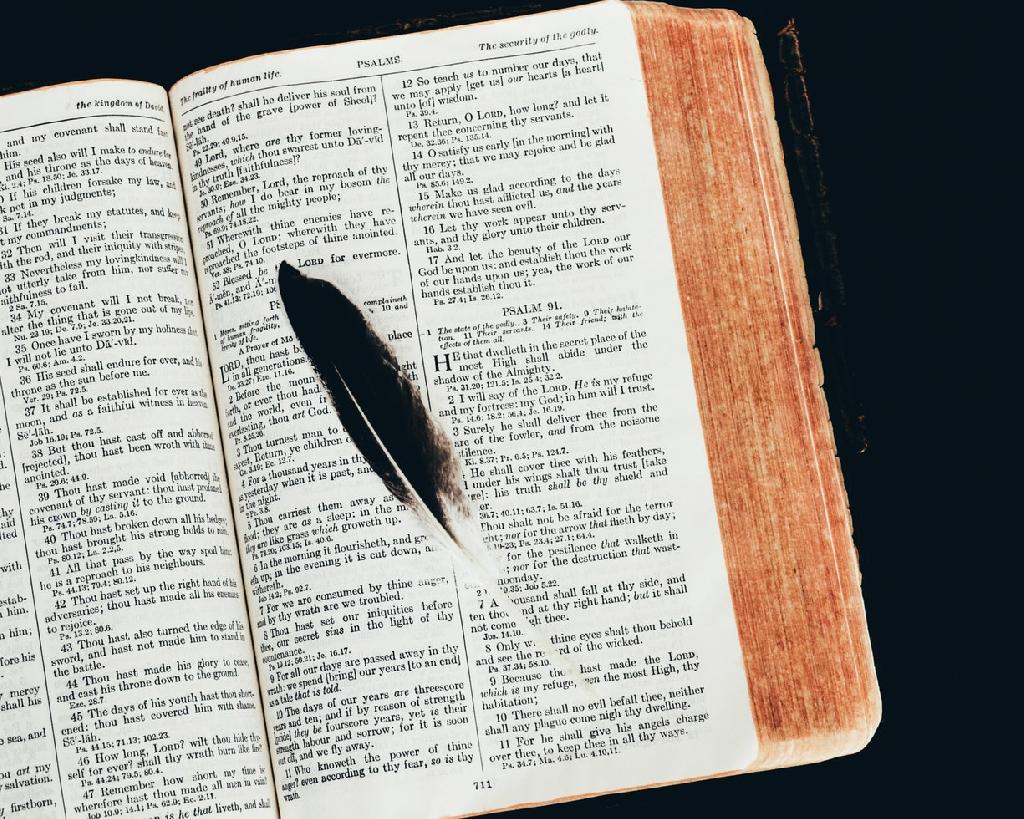 the kingdom of David.
and my covenant shall stand fast
him.
His seed also will I make to endure for
and his throne as the days of heaven.
If his children forsake my law, and
k not in my judgments;
31 If they break my statutes, and keep
t my commandments;
32 Then will I visit their transgression
with the rod, and their iniquity with stripes.
33 Nevertheless my lovingkindness will
not utterly take from him, nor suffer my
faithfulness to fail.
34 My covenant will I not break, nor
alter the thing that is gone out of my lips.
35 Once have I sworn by my holiness that
I will not lie unto Dā'-vid.
36 His seed shall endure for ever, and his
throne as the sun before me.
37 It shall be established for ever as the
moon, and as a faithful witness in heaven.
Sē'-läh.
38 But thou hast cast off and abhorred
[rejected], thou hast been wroth with thine
anointed.
39 Thou hast made void [abhorred] the
covenant of thy servant: thou hast profaned
his crown by casting it to the ground.
40 Thou hast broken down all his hedges;
thou hast brought his strong holds to ruin.
41 All that pass by the way spoil him:
he is a reproach to his neighbours.
42 Thou hast set up the right hand of his
adversaries; thou hast made all his enemies
to rejoice.
43 Thou hast also turned the edge of his
sword, and hast not made him to stand in
the battle.
44 Thou hast made his glory to cease,
and cast his throne down to the ground.
45 The days of his youth hast thou short-
ened: thou hast covered him with shame.
Sē'-läh.
46 How long, LORD? wilt thou hide thy-
self for ever? shall thy wrath burn like fire?
47 Remember how short my time is:
wherefore hast thou made all men in vain?
he that liveth, and shall
The frailty of human life.
PSALMS.
The security of the godly.
not see death? shall he deliver his soul from
the hand of the grave [power of Sheol]?
Sē'-läh.
49 Lord, where are thy former loving-
kindnesses, which thou swarest unto Dā'-vid
in thy truth [faithfulness]?
50 Remember, Lord, the reproach of thy
servants; how I do bear in my bosom the
reproach of all the mighty people;
51 Wherewith thine enemies have re-
proached, O LORD; wherewith they have
reproached the footsteps of thine anointed.
52 Blessed be LORD for evermore.
A Prayer of
LORD, thou hast place
in all generations.
2 Before the moun
forth, or ever thou ha
and the world, even
everlasting, thou art God.
3 Thou turnest man to
sayest, Return, ye children
4 For a thousand years in thy
as yesterday when it is past, and
in the night.
5 Thou carriest them away as
flood; they are as a sleep: in the m
they are like grass which groweth up.
6 In the morning it flourisheth, and gr
eth up; in the evening it is cut down, an
withereth.
7 For we are consumed by thine anger,
and by thy wrath are we troubled.
8 Thou hast set our iniquities before
thee, our secret sins in the light of thy
countenance.
9 For all our days are passed away in thy
wrath: we spend [bring] our years [to an end]
as a tale that is told.
10 The days of our years are threescore
years and ten; and if by reason of strength
they be fourscore years, yet is their
strength labour and sorrow; for it is soon
cut off, and we fly away.
11 Who knoweth the power of thine
anger? even according to thy fear, so is thy
wrath.
12 So teach us to number our days, that
we may apply [get us] our hearts [a heart]
unto [of] wisdom.
Ps. 39.4.
13 Return, O LORD, how long? and let it
repent thee concerning thy servants.
De. 32.36; Ps. 135.14.
14 O satisfy us early [in the morning] with
thy mercy; that we may rejoice and be glad
all our days.
Ps. 85.6; 149.2.
15 Make us glad according to the days
wherein thou hast afflicted us, and the years
wherein we have seen evil.
16 Let thy work appear unto thy serv-
ants, and thy glory unto their children.
Hab. 3.2.
17 And let the beauty of the LORD our
God be upon us: and establish thou the work
of our hands upon us; yea, the work of our
hands establish thou it.
Ps. 27.4; Is. 26.12.
PSALM 91.
1 The state of the godly. 3 Their safety. 9 Their habita-
tion. 11 Their servants. 14 Their friend; with the
effects of them all.
HE that dwelleth in the secret place of the
most High shall abide under the
shadow of the Almighty.
2 I will say of the LORD, He is my refuge
and my fortress: my God; in him will I trust.
3 Surely he shall deliver thee from the
are of the fowler, and from the noisome
stilence.
He shall cover thee with his feathers,
under his wings shalt thou trust [take
ge]: his truth shall be thy shield and
er.
Thou shalt not be afraid for the terror
ght; nor for the arrow that flieth by day;
for the pestilence that walketh in
; nor for the destruction that wast-
noonday.
7 A ousand shall fall at thy side, and
ten tho nd at thy right hand; but it shall
not come gh thee.
Jos. 14.10.
8 Only w thine eyes shalt thou behold
and see the re d of the wicked.
9 Because tho hast made the LORD,
which is my refuge, ven the most High, thy
habitation;
10 There shall no evil befall thee, neither
shall any plague come nigh thy dwelling.
11 For he shall give his angels charge
over thee, to keep thee in all thy ways.
Ps. 34.7; Ma. 4.6; Lu. 4.10,11.
711